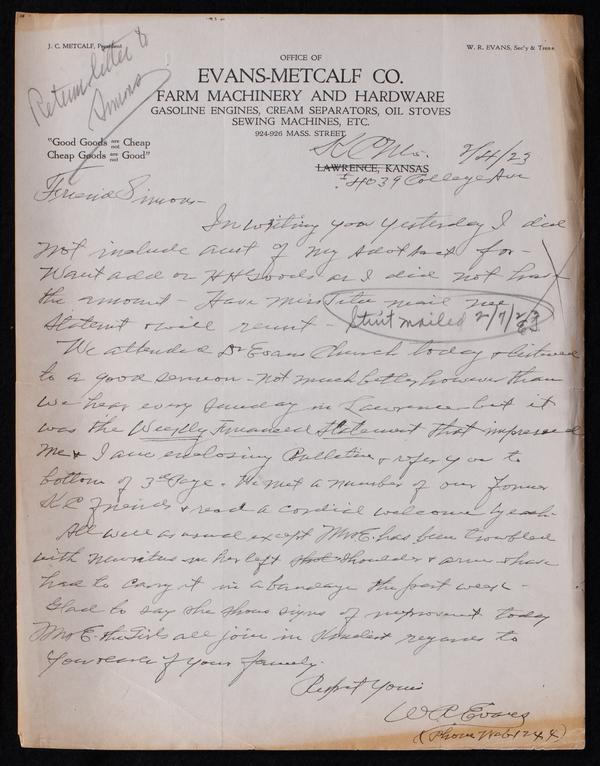 J. C. METCALF, President
W. R. EVANS, Sec'y & Treas
Return letter to
Simons
OFFICE OF
EVANS-METCALF CO.
FARM MACHINERY AND HARDWARE
GASOLINE ENGINES, CREAM SEPARATORS, OIL STOVES
SEWING MACHINES, ETC.
924-926 MASS. STREET
"Good Goods are not Cheap
Cheap Goods are not Good"
K C Mo. 2/4/23
LAWRENCE, KANSAS
4039 College Ave
Friend Simons-
In writing you yesterday I did
not include amt of my for-
Want add on H H Goods as I did not have
the amount - Have Miss mail me
Statemt & will remit - Stmt mailed 2/7/23
We attended Dr Evans Church today & listened
to a good sermon - not much better however than
we hear every sunday in Lawrence - but it
was the Weekly Financial Statement that impressed
me & I am enclosing Bulletin & refer you to
bottom of 3rd Page. We met a number of our former
K C friends & read a cordial welcome by each.
All well as usual except Mrs E. has been troubled
with Neuritus in her left shoulder & arm & have
had to carry it in a bandage the past week -
Glad to say she shows signs of improvemt today
Mrs E. the Girls all join in Kindest regards to
your family.
Respct Yours
W R Evans
(Phone Wab 1244)